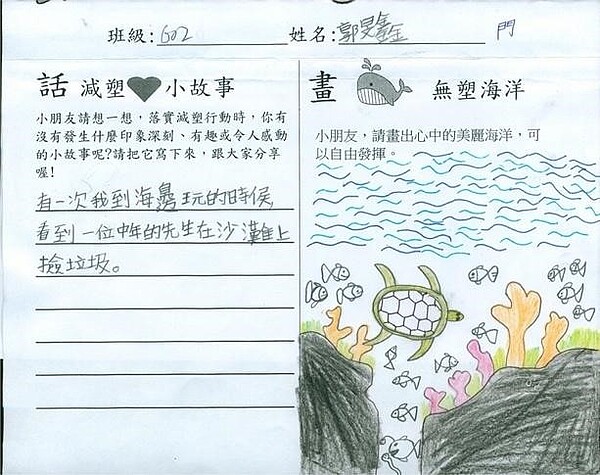 班級: 602 姓名: 郭旻鑫 門
話 減塑 小故事
小朋友請想一想，落實減塑行動時，你有
沒有發生什麼印象深刻、有趣或令人感動
的小故事呢?請把它寫下來，跟大家分享
喔!
有一次我到海邊玩的時候，
看到一位中年的先生在沙灘上
撿垃圾。
畫 無塑海洋
小朋友，請畫出心中的美麗海洋，可
以自由發揮。